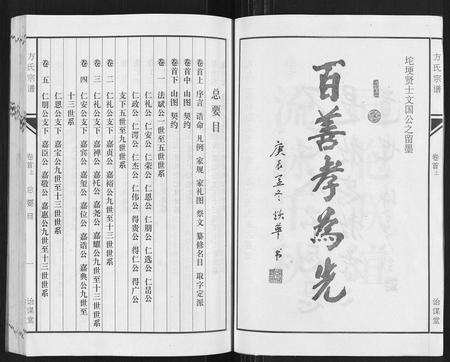 坨埂贤士文国公之留墨
百善孝為先
书
卷首上
方氏宗谱
卷首上
总要目
治谋堂
总要目
卷首上 序言 诰命 凡例 家规 家礼图 祭文 纂修名目 取字定派
卷首中 山图 契约
卷首下 山图 契约
卷一 法斌公一世至五世世系
仁礼公 仁安公 仁荣公 仁恩公 仁朋公 仁选公 仁昷公
仁政公 仁滞公 仁杰公 仁伟公 得贵公 得仁公 得广公
支下五世至九世世系
卷二 仁礼公支下嘉贞公 嘉裕公九世至十三世世系
卷三 仁礼公支下嘉禅公 嘉尧公 嘉耀公九世至十三世世系
卷四 仁安公支下嘉宾公 嘉玺公 嘉位公 嘉谐公 嘉典公九世至
十三世世系
仁恩公支下嘉宝公九世至十三世世系
卷五 仁朋公支下嘉臣公 嘉敬公 嘉惠公九世至十三世世系
方氏宗谱
卷首上
总要目
一
治谋堂